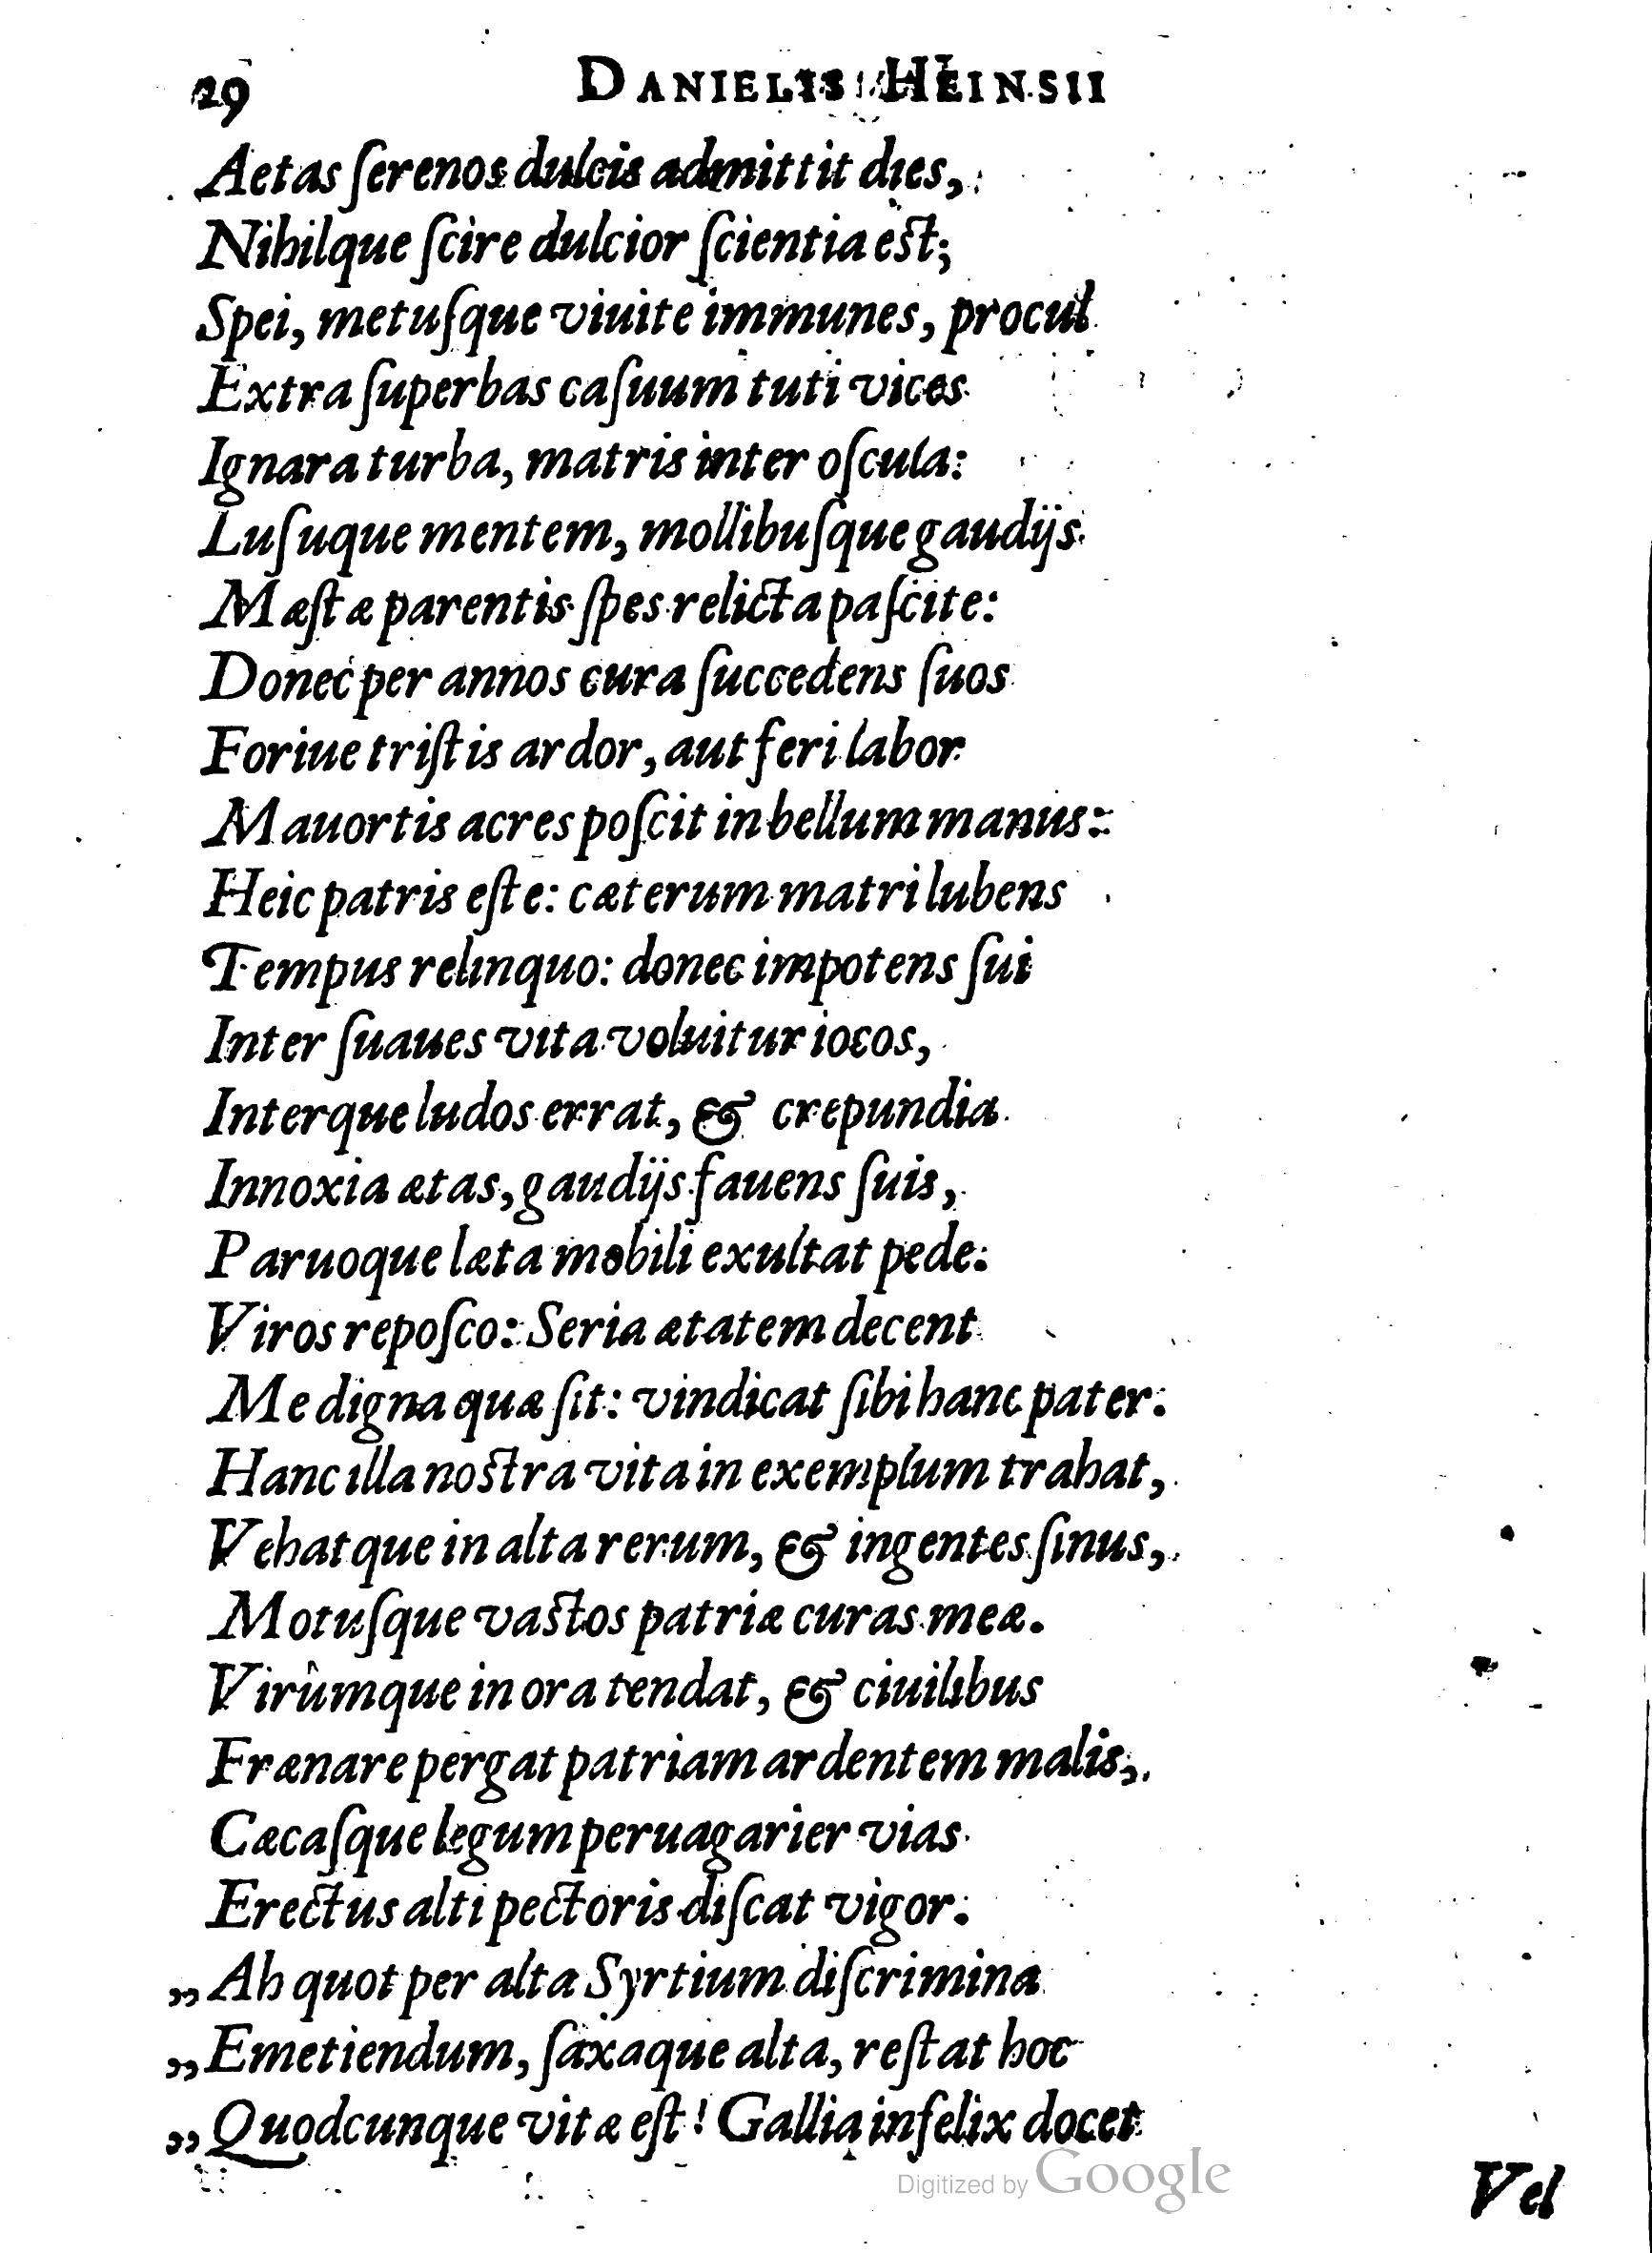 29 DANIELIS HEINSII
Aetas ſerenos dulcis admittit dies,
Nihilque ſcire dulcior ſcientia est;
Spei, metuſque viuite immunes, procul
Extra ſuperbas caſuum tuti vices
Ignara turba, matris inter oſcula:
Luſuque mentem, mollibuſque gaudijs
Mæſtæ parentis ſpes relicta paſcite:
Donec per annos cura ſuccedens ſuos
Foriue triſtis ardor, aut feri labor
Mauortis acres poſcit in bellum manus:
Heic patris eſte: cæterum matri lubens
Tempus relinquo: donec impotens ſui
Inter ſuaues vita voluitur iocos,
Interque ludos errat, & crepundia
Innoxia ætas, gaudijs fauens ſuis,
Paruoque læta mobili exultat pede:
Viros repoſco: Seria ætatem decent
Me digna quæ ſit: vindicat ſibi hanc pater:
Hanc illa nostra vita in exemplum trahat,
Vehatque in alta rerum, & ingentes ſinus,
Motuſque vastos patriæ curas meæ.
Virûmque in ora tendat, & ciuilibus
Frænare pergat patriam ardentem malis,
Cæcaſque legum peruagarier vias
Erectus alti pectoris diſcat vigor:
„ Ah quot per alta Syrtium diſcrimina
„ Emetiendum, ſaxaque alta, reſtat hoc
„ Quodcunque vitæ eſt! Gallia infelix docet
Digitized by Google
Vel